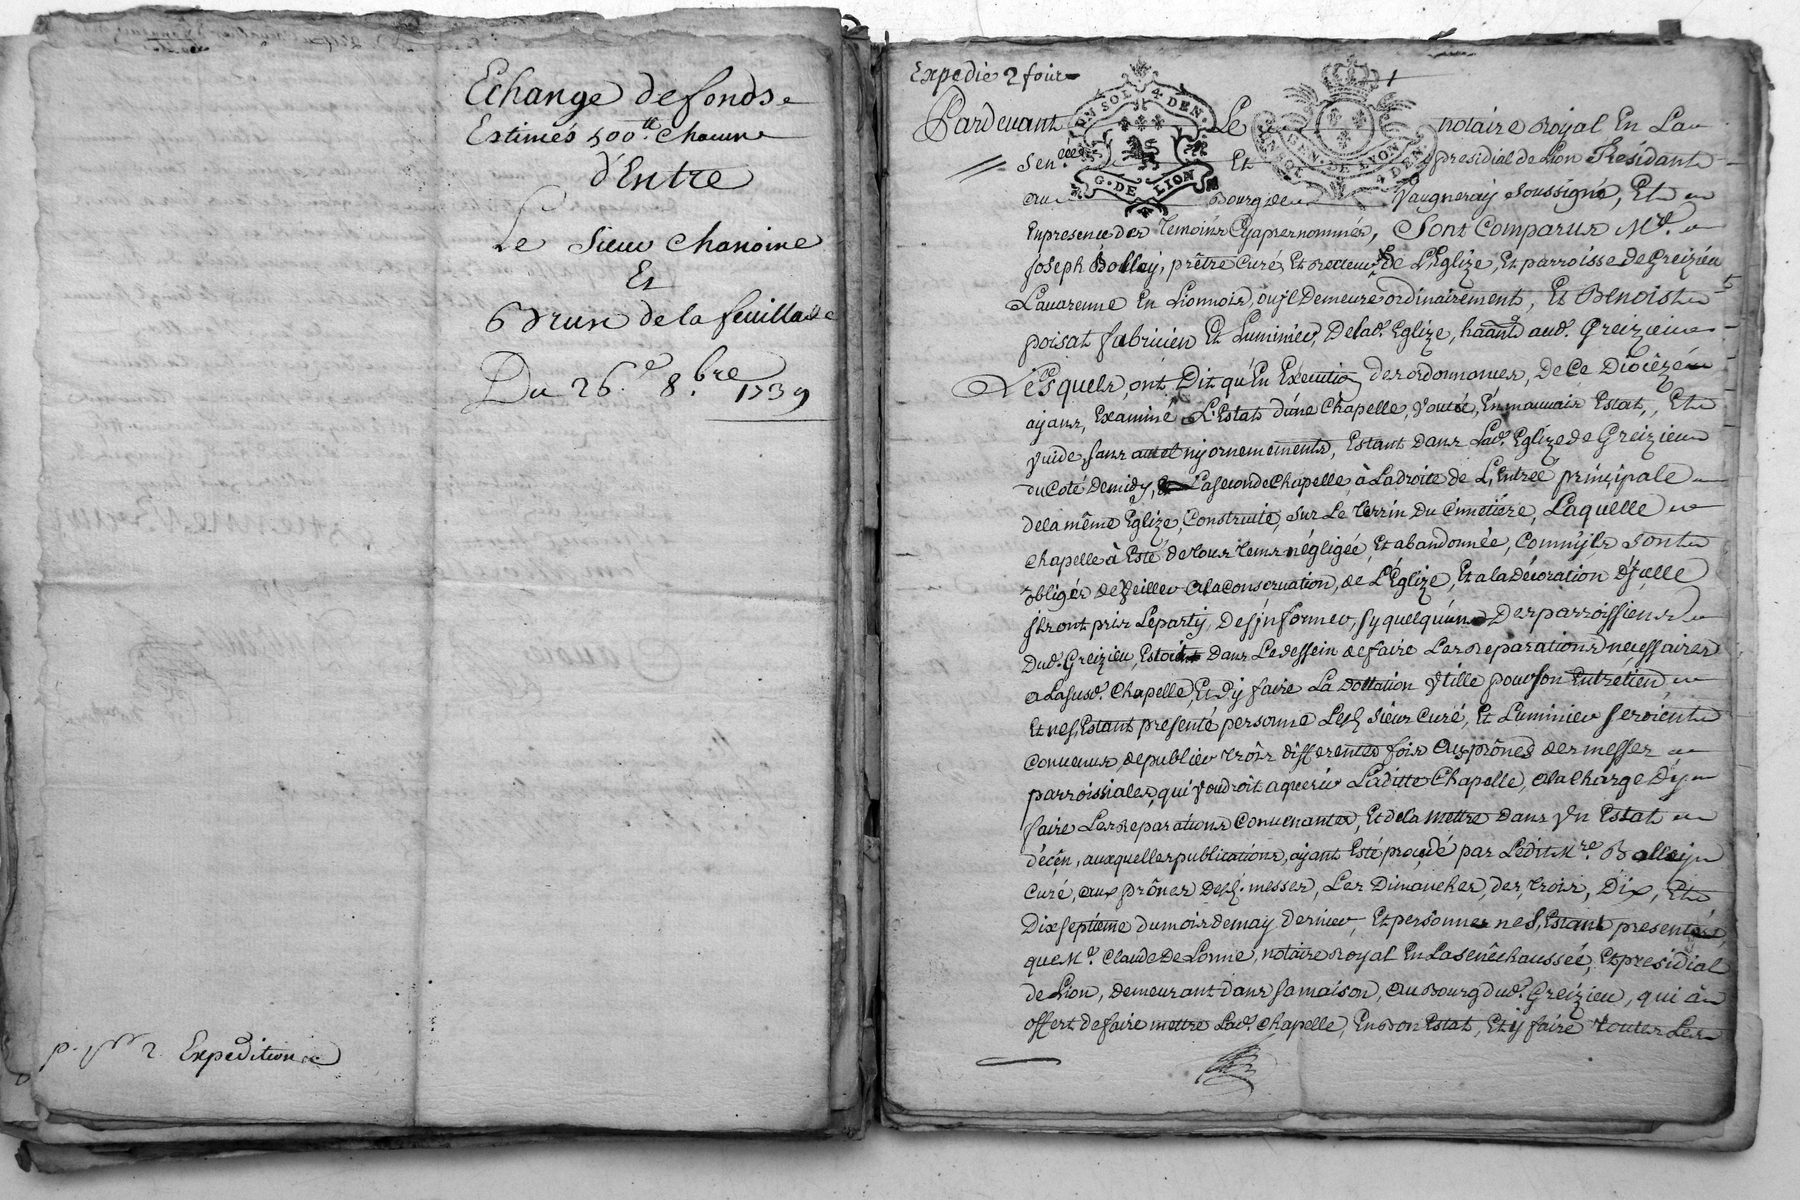 Echange de fonds
Estimés 500tt Chacune
d'Entre
Le Sieur Chanoine
Et
Brun de la feuillade
Du 26e 8.bre 1739
Expedition
Expedie 2 fois
DV SOL 4 DEN.
G. DE LION
GEN. DE LYON
4 DEN.
Pardevant Le notaire Royal En La
Sen.cee Et presidial de Lion Résidant
au Bourg de Vaugneray soussigné, Et
En presence des temoins Cyapres nommés, Sont Comparus Mre.
joseph Balley, prêtre Curé, Et recteur de L'Eglize, Et parroisse de Greizieu
Lavarenne En Lionnois, ou jl Demeure ordinairement, Et Benoist
poisat fabricien Et Luminier, De lad. Eglize, habant aud. Greizieu
Lesquels, ont Dit qu'En Execution des ordonnances, de Ce Diocêze
ayans, Examiné L'Estat d'une Chapelle, voutée, En mauvais Estat, Et
vuide, sans autel ny ornements, Estant dans Lad. Eglize de Greizieu
du Coté De midy, La seconde Chapelle, à La droite de L'Entrée principale
de la même Eglize, Construite, sur Le terrin Du Cimetière, Laquelle
Chapelle à Esté de tous tems négligée, Et abandonnée, Comm'jls sont
obligés de veiller a la conservation, de L'Eglize, Et a la décoration d'jcelle
jls ont pris Le party, de s'jnformer, sy quelqu'un Des parroissiens
Dud. Greizieu, Estoit Dans Le dessein de faire Les reparations necessaires
a La susd. Chapelle, Et d'y faire La dottation vtille pour son Entretien
Et ne s'Estant présenté personne Lesd. sieur Curé, Et Luminier seroient
Convenus de publier trois differentes fois aux prônes des messes
parroissiales, qui voudroit aquerir Laditte Chapelle, a la Charge d'y
faire Les reparations Convenantes, Et de la mettre dans vn Estat
décen, auxquelles publications, ayant Esté procédé par Ledit Mre. Balley
Curé, aux prônes desd. messes, Les Dimanches, des, trois, Dix, Et
Dixseptieme du mois de may dernier, Et personne ne s'Estant presenté
que Me. Claude De Lorme, notaire Royal En La senêchaussée, Et presidial
de Lion, demeurant dans sa maison, au Bourg dud. Greizieu, qui a
offert de faire mettre Lad. Chapelle, En Bon Estat, Et y faire toutes Les